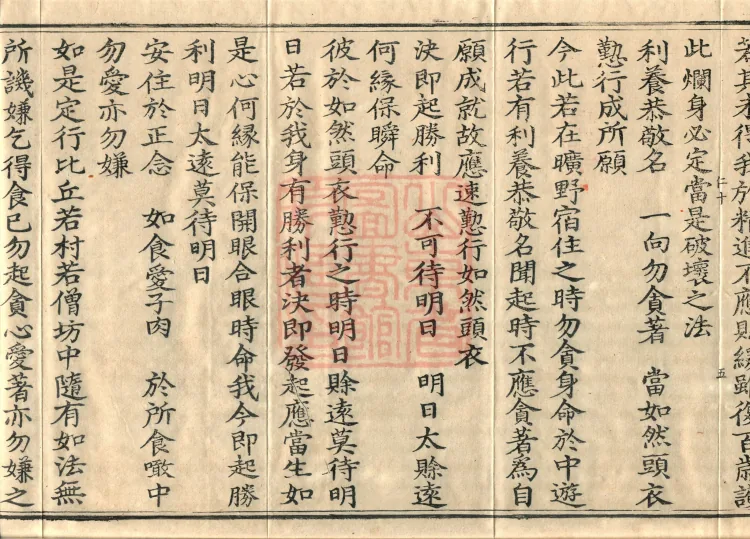 於精進不應
此爛身必定當是破壞之法
仁十
五
利養恭敬名　一向勿貪著　當如然頭衣
懃行成所願
今此若在曠野宿住之時勿貪身命於中遊
行若有利養恭敬名聞起時不應貪著爲自
願成就故應速懃行如然頭衣
決即起勝利　不可待明日　明日太賒遠
何緣保瞬命
彼於如然頭衣懃行之時明日賒遠莫待明
日若於我身有勝利者決即發起應當生如
是心何緣能保開眼合眼時命我今即起勝
利明日太遠莫待明日
安住於正念　如食愛子肉　於所食噉中
勿愛亦勿嫌
如是定行比丘若村若僧坊中隨有如法無
所譏嫌乞得食已勿起貪心愛著亦勿嫌之